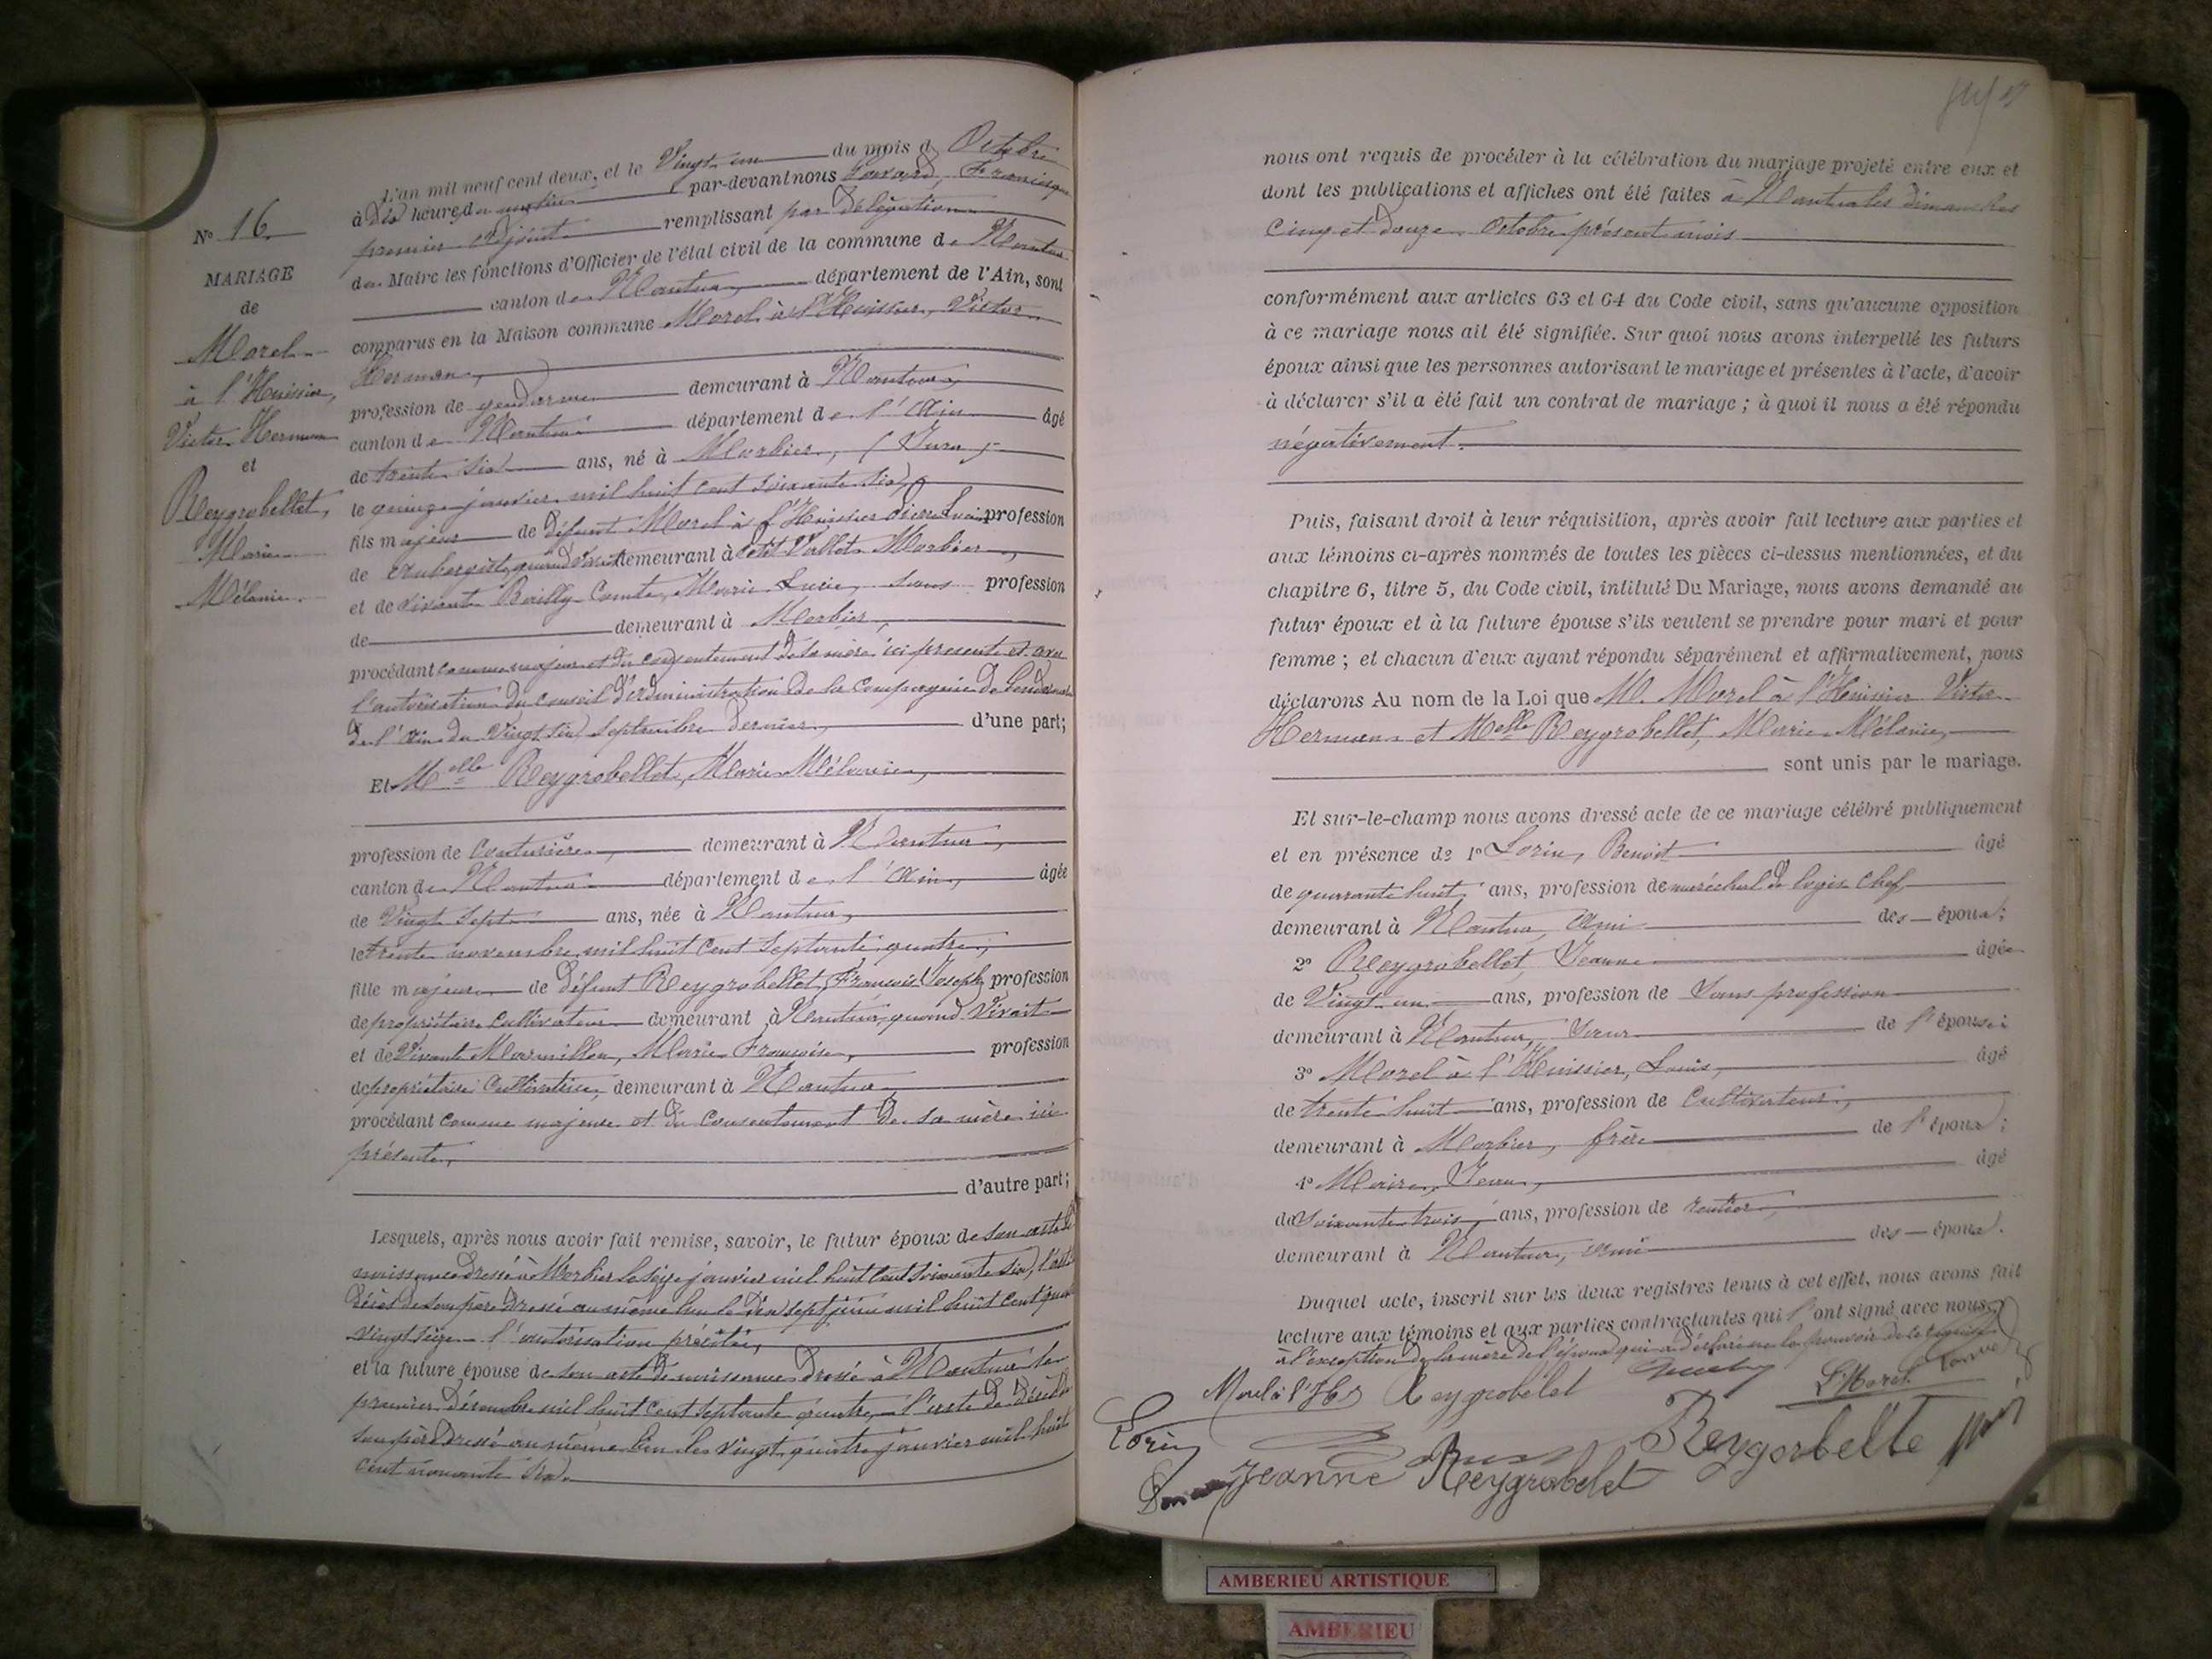 L'an mil neuf cent deux, et le Vingt un du mois d Octobre
à Dix heures du matin par-devant nous Francisque
premier adjoint remplissant par délégation
du Maire les fonctions d'Officier de l'état civil de la commune de Nantua
canton de Nantua département de l'Ain, sont
comparus en la Maison commune Morel à l'Huissier, Victor
Herman,
profession de gendarme demeurant à Nantua,
canton de Nantua département de l'Ain âgé
de trente six ans, né à Morbier, (Jura)
le quinze janvier mil huit cent soixante six,
fils majeur de défunt Morel à l'Huissier Pierre Louis profession
de aubergiste, quand vivait demeurant à Petit Vallet Morbier,
et de vivante Bailly-Comte, Marie Lucie, sans profession
de demeurant à Morbier,
procédant comme majeur et du consentement de sa mère ici présente et avec
l'autorisation du conseil d'administration de la compagnie de Gendarmerie
de l'Ain du Vingt six Septembre dernier, d'une part;
Et Melle Reygrobellet, Marie Mélanie,
profession de Couturière, demeurant à Nantua,
canton de Nantua département de l'Ain, âgée
de Vingt sept ans, née à Nantua,
le trente novembre mil huit cent septante quatre,
fille majeure de défunt Reygrobellet, François Joseph profession
de propriétaire cultivateur demeurant à Nantua, quand vivait
et de Vivante Marmillon, Marie Françoise, profession
de propriétaire Cultivatrice, demeurant à Nantua
procédant comme majeure et du consentement de sa mère ici
présente,
d'autre part;
Lesquels, après nous avoir fait remise, savoir, le futur époux de son acte de
naissance dressé à Morbier le seize janvier mil huit cent soixante six, l'acte
décès de son père dressé au même lieu le dix sept juin mil huit cent quatre
vingt seize - l'autorisation précitée,
et la future épouse de son acte de naissance dressé à Nantua le
premier Décembre mil huit cent septante quatre, - l'acte de décès de
son père dressé au même lieu le vingt quatre janvier mil huit
cent nonante six.
N° 16
MARIAGE
de
Morel
à l'Huissier,
Victor Herman
et
Reygrobellet,
Marie
Mélanie.
nous ont requis de procéder à la célébration du mariage projeté entre eux et
dont les publications et affiches ont été faites à Nantua les dimanches
Cinq et douze Octobre présent mois
conformément aux articles 63 et 64 du Code civil, sans qu'aucune opposition
à ce mariage nous ait été signifiée. Sur quoi nous avons interpellé les futurs
époux ainsi que les personnes autorisant le mariage et présentes à l'acte, d'avoir
à déclarer s'il a été fait un contrat de mariage ; à quoi il nous a été répondu
négativement.
Puis, faisant droit à leur réquisition, après avoir fait lecture aux parties et
aux témoins ci-après nommés de toutes les pièces ci-dessus mentionnées, et du
chapitre 6, titre 5, du Code civil, intitulé Du Mariage, nous avons demandé au
futur époux et à la future épouse s'ils veulent se prendre pour mari et pour
femme ; et chacun d'eux ayant répondu séparément et affirmativement, nous
déclarons Au nom de la Loi que M. Morel à l'Huissier Victor
Herman et Melle Reygrobellet, Marie Mélanie,
sont unis par le mariage.
Et sur-le-champ nous avons dressé acte de ce mariage célébré publiquement
et en présence de 1° Lorin, Benoit âgé
de quarante huit ans, profession de maréchal des logis chef
demeurant à Nantua, ami des époux;
2° Reygrobellet Jeanne âgée
de Vingt un ans, profession de Sans profession
demeurant à Nantua, Soeur de l'épouse;
3° Morel à l'Huissier, Louis, âgé
de trente huit ans, profession de Cultivateur,
demeurant à Morbier, frère de l'époux;
4° Jean, âgé
de soixante trois, ans, profession de rentier,
demeurant à Nantua, ami des époux.
Duquel acte, inscrit sur les deux registres tenus à cet effet, nous avons fait
lecture aux témoins et aux parties contractantes qui l'ont signé avec nous,
à l'exception de la mère de l'époux qui a déclaré ne le pouvoir de ce requise
Morel à l'Hr Reygrobelet L. Morel
Lorin Reygorbelte
Jeanne Reygrobelet
AMBERIEU ARTISTIQUE
AMBERIEU